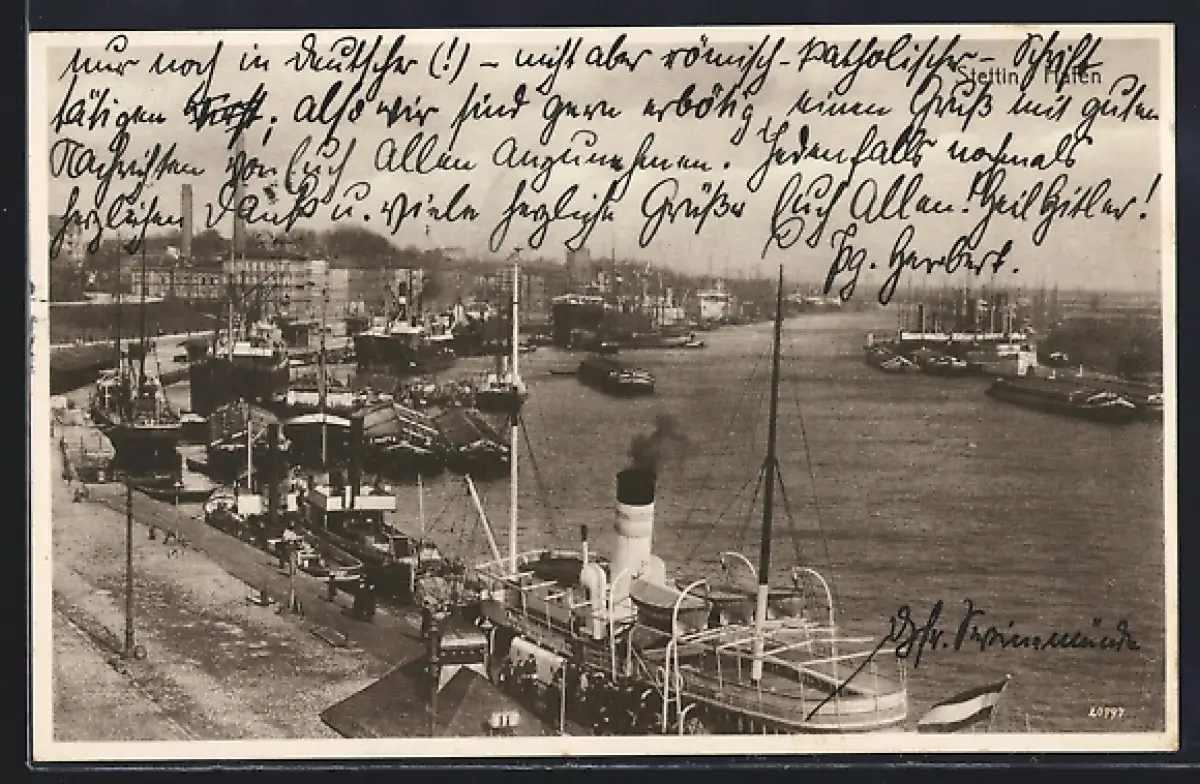 nur noch in deutscher (!) – nicht aber römisch-katholischer – Schrift
Stettin, Hafen
tätigen; also wir sind gern erbötig, einen Gruß mit guten
Nachrichten von Euch Allen anzunehmen. Jedenfalls nochmals
herzlichen Dank u. viele herzliche Grüße Euch Allen! Heil Hitler!
Pg. Herbert.
Swinemünde